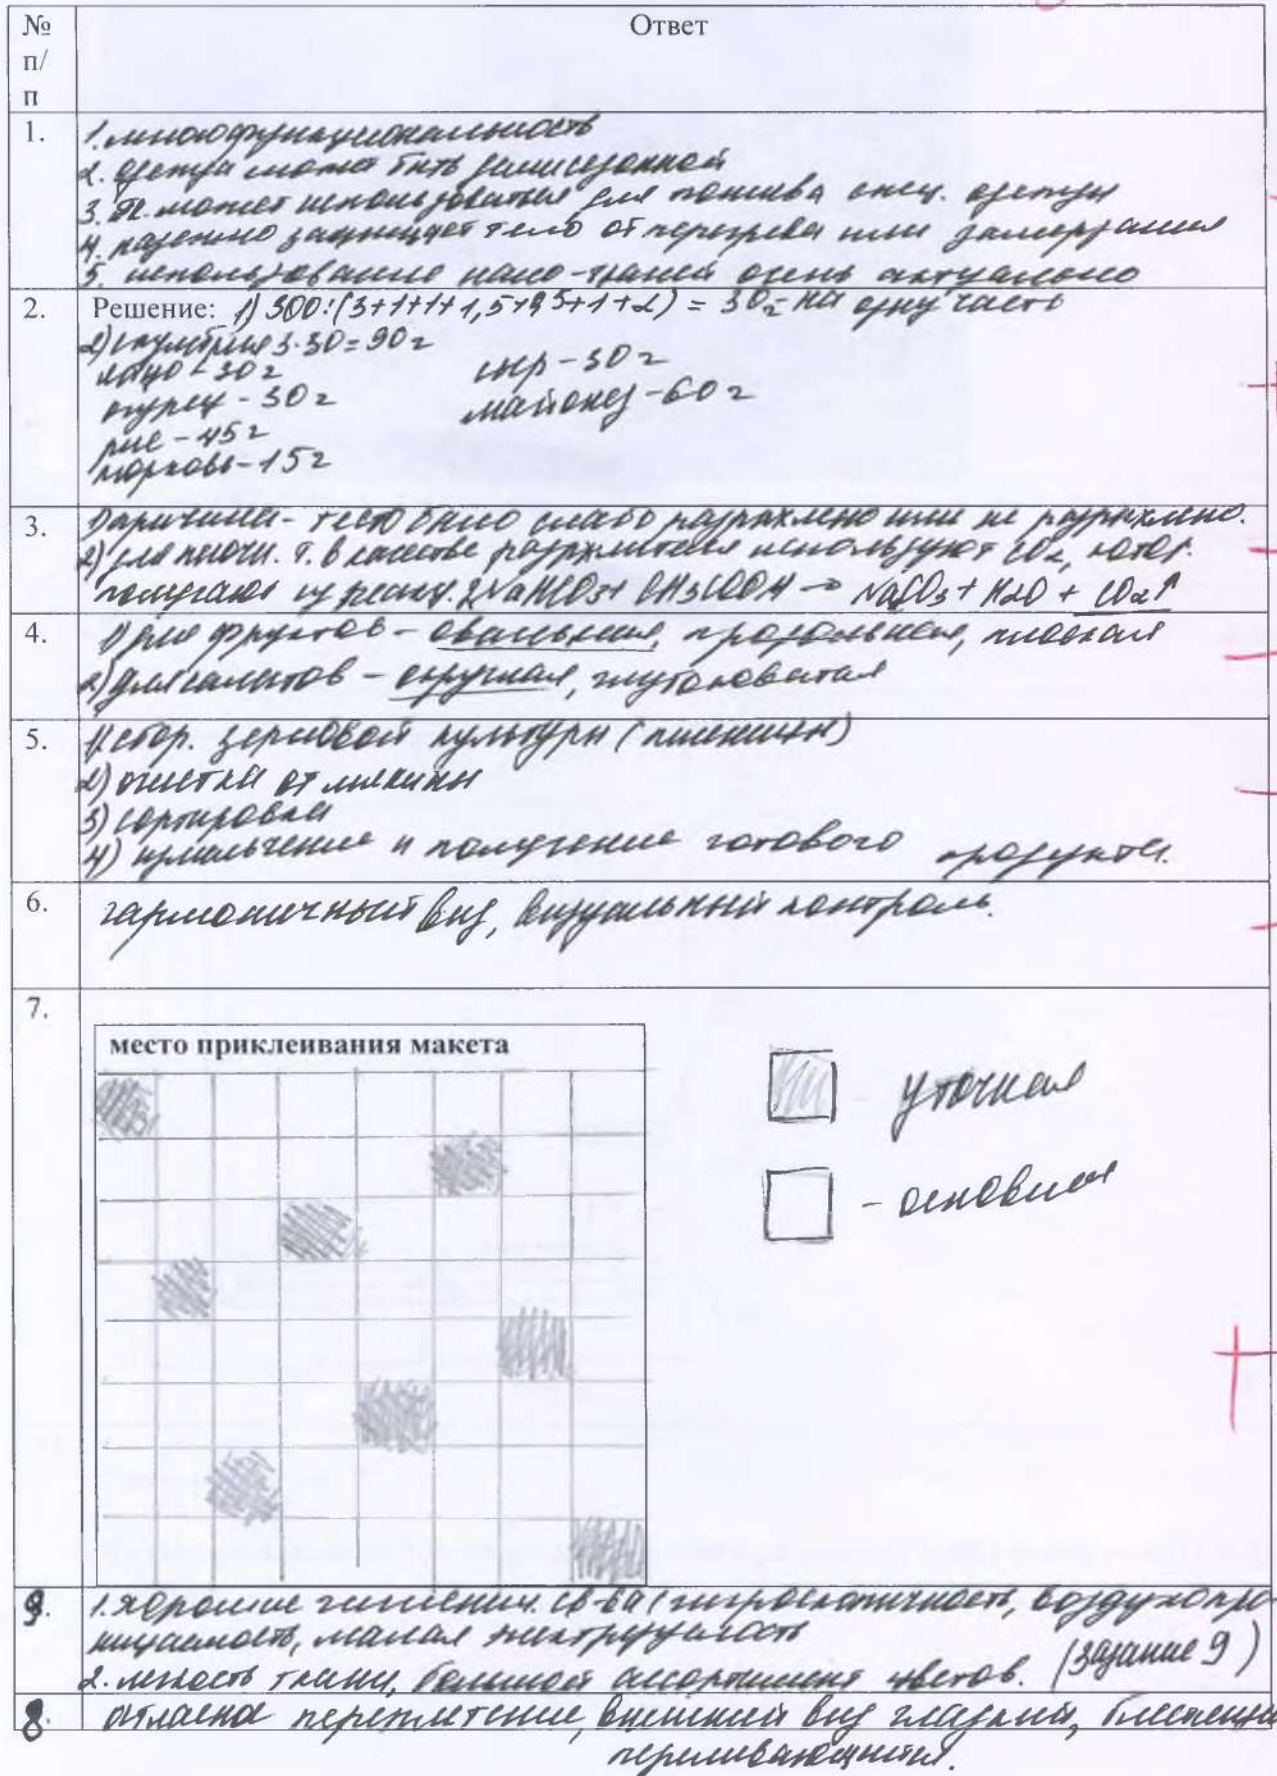 №
п/
п
Ответ
1.
1. многофункциональность
2. одежда может быть демисезонной
3. может использоваться для пошива спец. одежды
4. надежно защищает тело от перегрева или замерзания
5. использование нано-тканей очень актуально
2.
Решение: 1) 300:(3+1+1+1,5+0,5+1+2) = 30г на одну часть
2) скумбрия 3·30=90г
яйцо - 30г
огурец - 30г
рис - 45г
морковь - 15г
сыр - 30г
майонез - 60г
3.
1) причина - тесто было слабо разрыхлено или не разрыхлено.
2) для т. в качестве разрыхлителя используют CO2, котор.
получают из реакц. 2NaHCO3+ CH3COOH → NaCO3 + H2O + CO2↑
4.
1) для фруктов - овальная, продольная, плоская
2) для салатов - округлая, глубоковатая
5.
1) сбор. зерновой культуры (пшеницы)
2) очистка от мякины
3) сортировка
4) измельчение и получение готового продукта.
6.
гармоничный вид, визуальный контроль.
7.
место приклеивания макета
уточная
- основная
9.
1. хорошие гигиенич. св-ва (гигроскопичность, воздухопро-
ницаемость, малая
2. легкость ткани, большой ассортимент цветов. (задание 9)
8.
переплетение, внешний вид гладкий,
переливающийся.